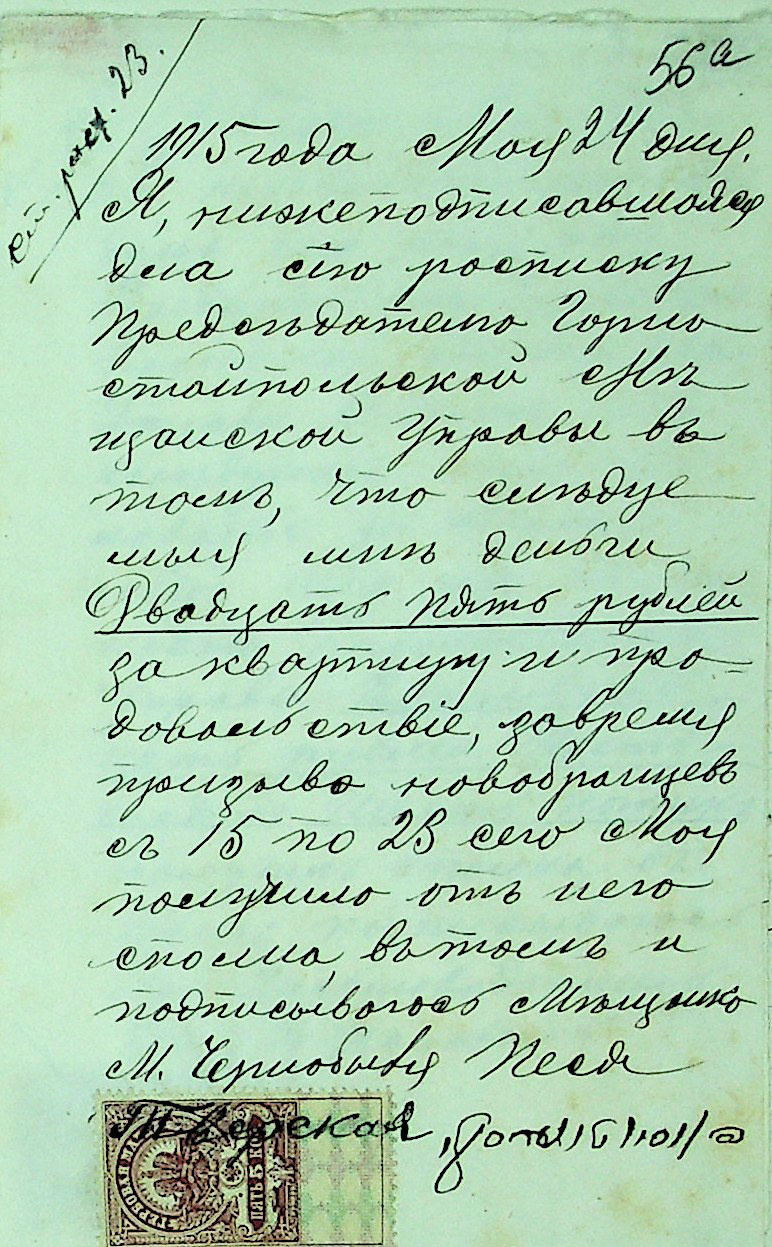 56а
Ст. расх. 23.
1915 года Мая 24 дня.
Я, нижеподписавшаяся
дала сію росписку
Предсѣдателю Горно
стайпольской Мѣ
щанской Управы въ
томъ, что слѣдуе
мыя мнѣ деньги
Двадцать пять рублей
за квартиру и про-
довольствіе, за время
призыва новобранцевъ
съ 15 по 23 сего Мая
получила отъ него
сполна, въ томъ и
подписываюсь Мѣщанка
М. Чернобыля Песя
Тверская,
ГЕРБОВАЯ МАР
ПЯТЬ К